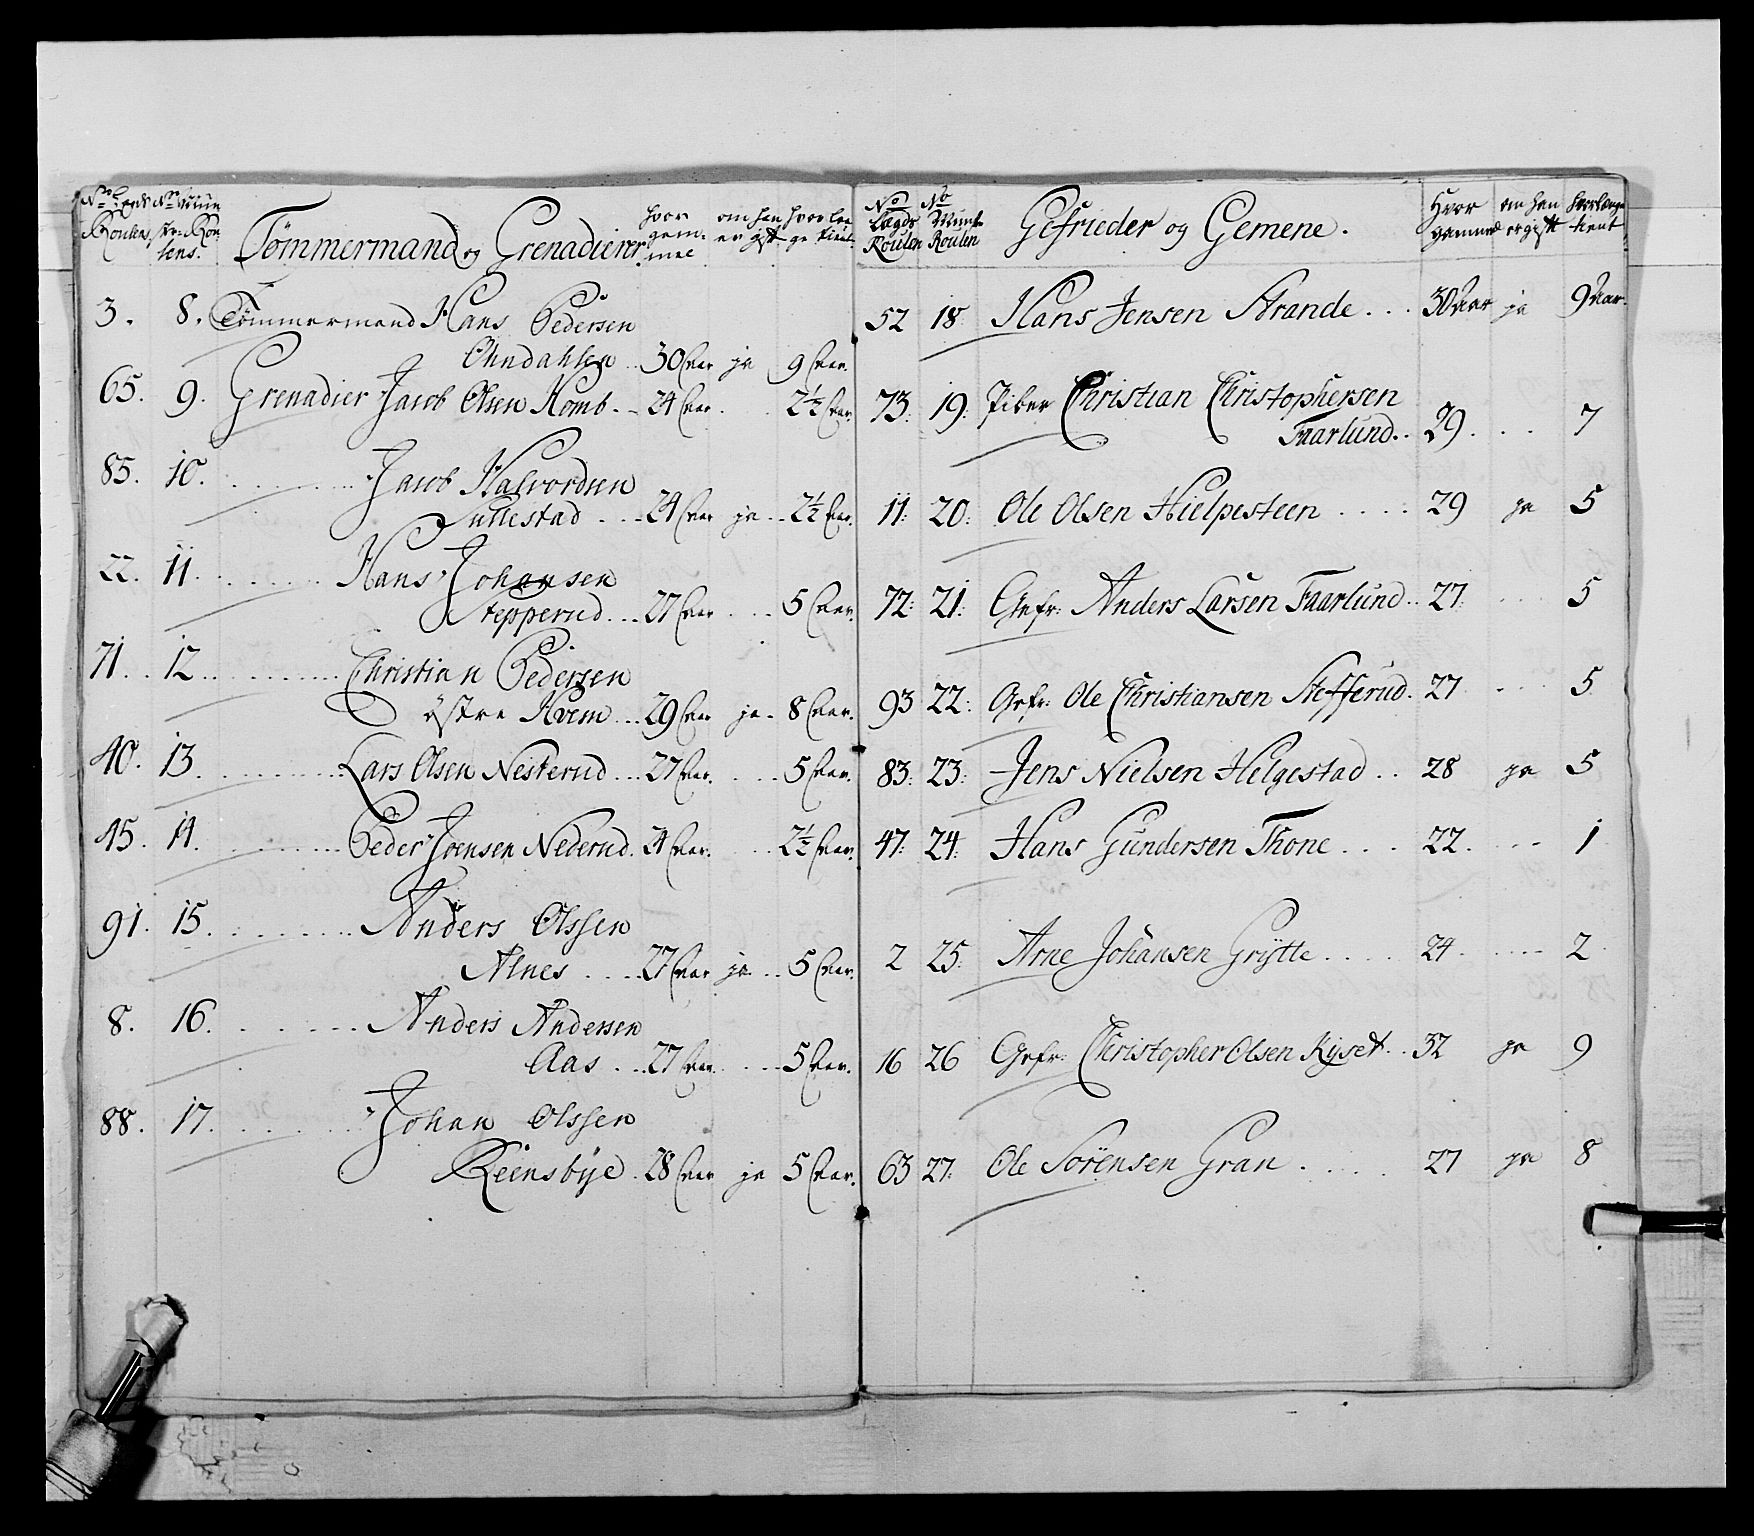 No Lægds Roulen No Munster Roulens. Tømmermand og Grenadierer hvor gammel om han er gift hvor længe tient
3. 8. Tømmermand Hans Pedersen
Ohndahlen .. 30 Aar ja 9 Aar.
65. 9. Grenadier Jacob Olsen Komb. .. 24 Aar. .. 2½ Aar.
85. 10. Jacob Halvordsen
Tullestad ... 24 Aar ja .. 2½ Aar.
22. 11. Hans Johansen
Stepperud ... 27 Aar ... 5 Aar.
71. 12. Christian Pedersen
östre Hvem ... 29 Aar ja. 8 Aar.
40. 13. Lars Olsen Nesterud ... 27 Aar. .... 5 Aar.
45. 14. Peder Joensen Nederud. 24 Aar. ... 2½ Aar.
91. 15. Anders Olssen
Alnes .... 27 Aar ja .. 5 Aar.
8. 16. Anders Andersen
Aas ... 27 Aar. .... 5 Aar.
88. 17. Johan Olssen
Reensbÿe . 28 Aar ja 5 Aar.
No Lægds Roulen No Munst: Roulen Gefrieder og Gemene. Hvor gammel om han er gift hvorlænge tient
52 18 Hans Jensen Strande ... 30 Aar ja 9 Aar.
73. 19. Piber Christian Christophersen
Faarlund .. 29. ... 7
11: 20: Ole Olsen Hielpesteen .... 29 ja 5
72: 21: Gefr: Anders Larsen Faarlund .. 27. ... 5
93 22: Gefr: Ole Christiansen Stefferud. 27 ... 5
83: 23: Jens Nielsen Helgestad .. 28 ja 5
47: 24: Hans Gundersen Thone ... 22. ... 1
2 25: Arne Johansen Grÿtte .... 24. .... 2
16 26 Gefr: Christopher Olsen Kyset .. 32 ja 9
63 27: Ole Sörensen Gran .... 27 ja 8